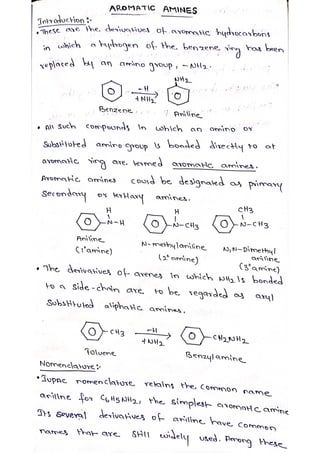 AROMATIC AMINES
Introduction :-
• These are the derivatives of aromatic hydrocarbons
in which a hydrogen of the benzene ring has been
replaced by an amino group, -NH2.
NH2
-H
+NH2
Benzene
Aniline
• All such compounds in which an amino or
substituted amino group is bonded directly to at
aromatic ring are termed aromatic amines.
Aromatic amines could be designated as primary
secondary or tertiary amines.
H H CH3
N-H N-CH3 N-CH3
Aniline N-methylaniline N,N-Dimethyl
aniline
(1° amine) (2° amine) (3° amine)
• The derivatives of arenes in which NH2 is bonded
to a side-chain are to be regarded as aryl
substituted aliphatic amines.
CH3 -H CH2NH2
+NH2
Toluene Benzylamine
Nomenclature:-
• Iupac nomenclature retains the common name
aniline for C6H5NH2, the simplest aromatic amine
Its several derivatives of aniline have common
names that are still widely used. Among these